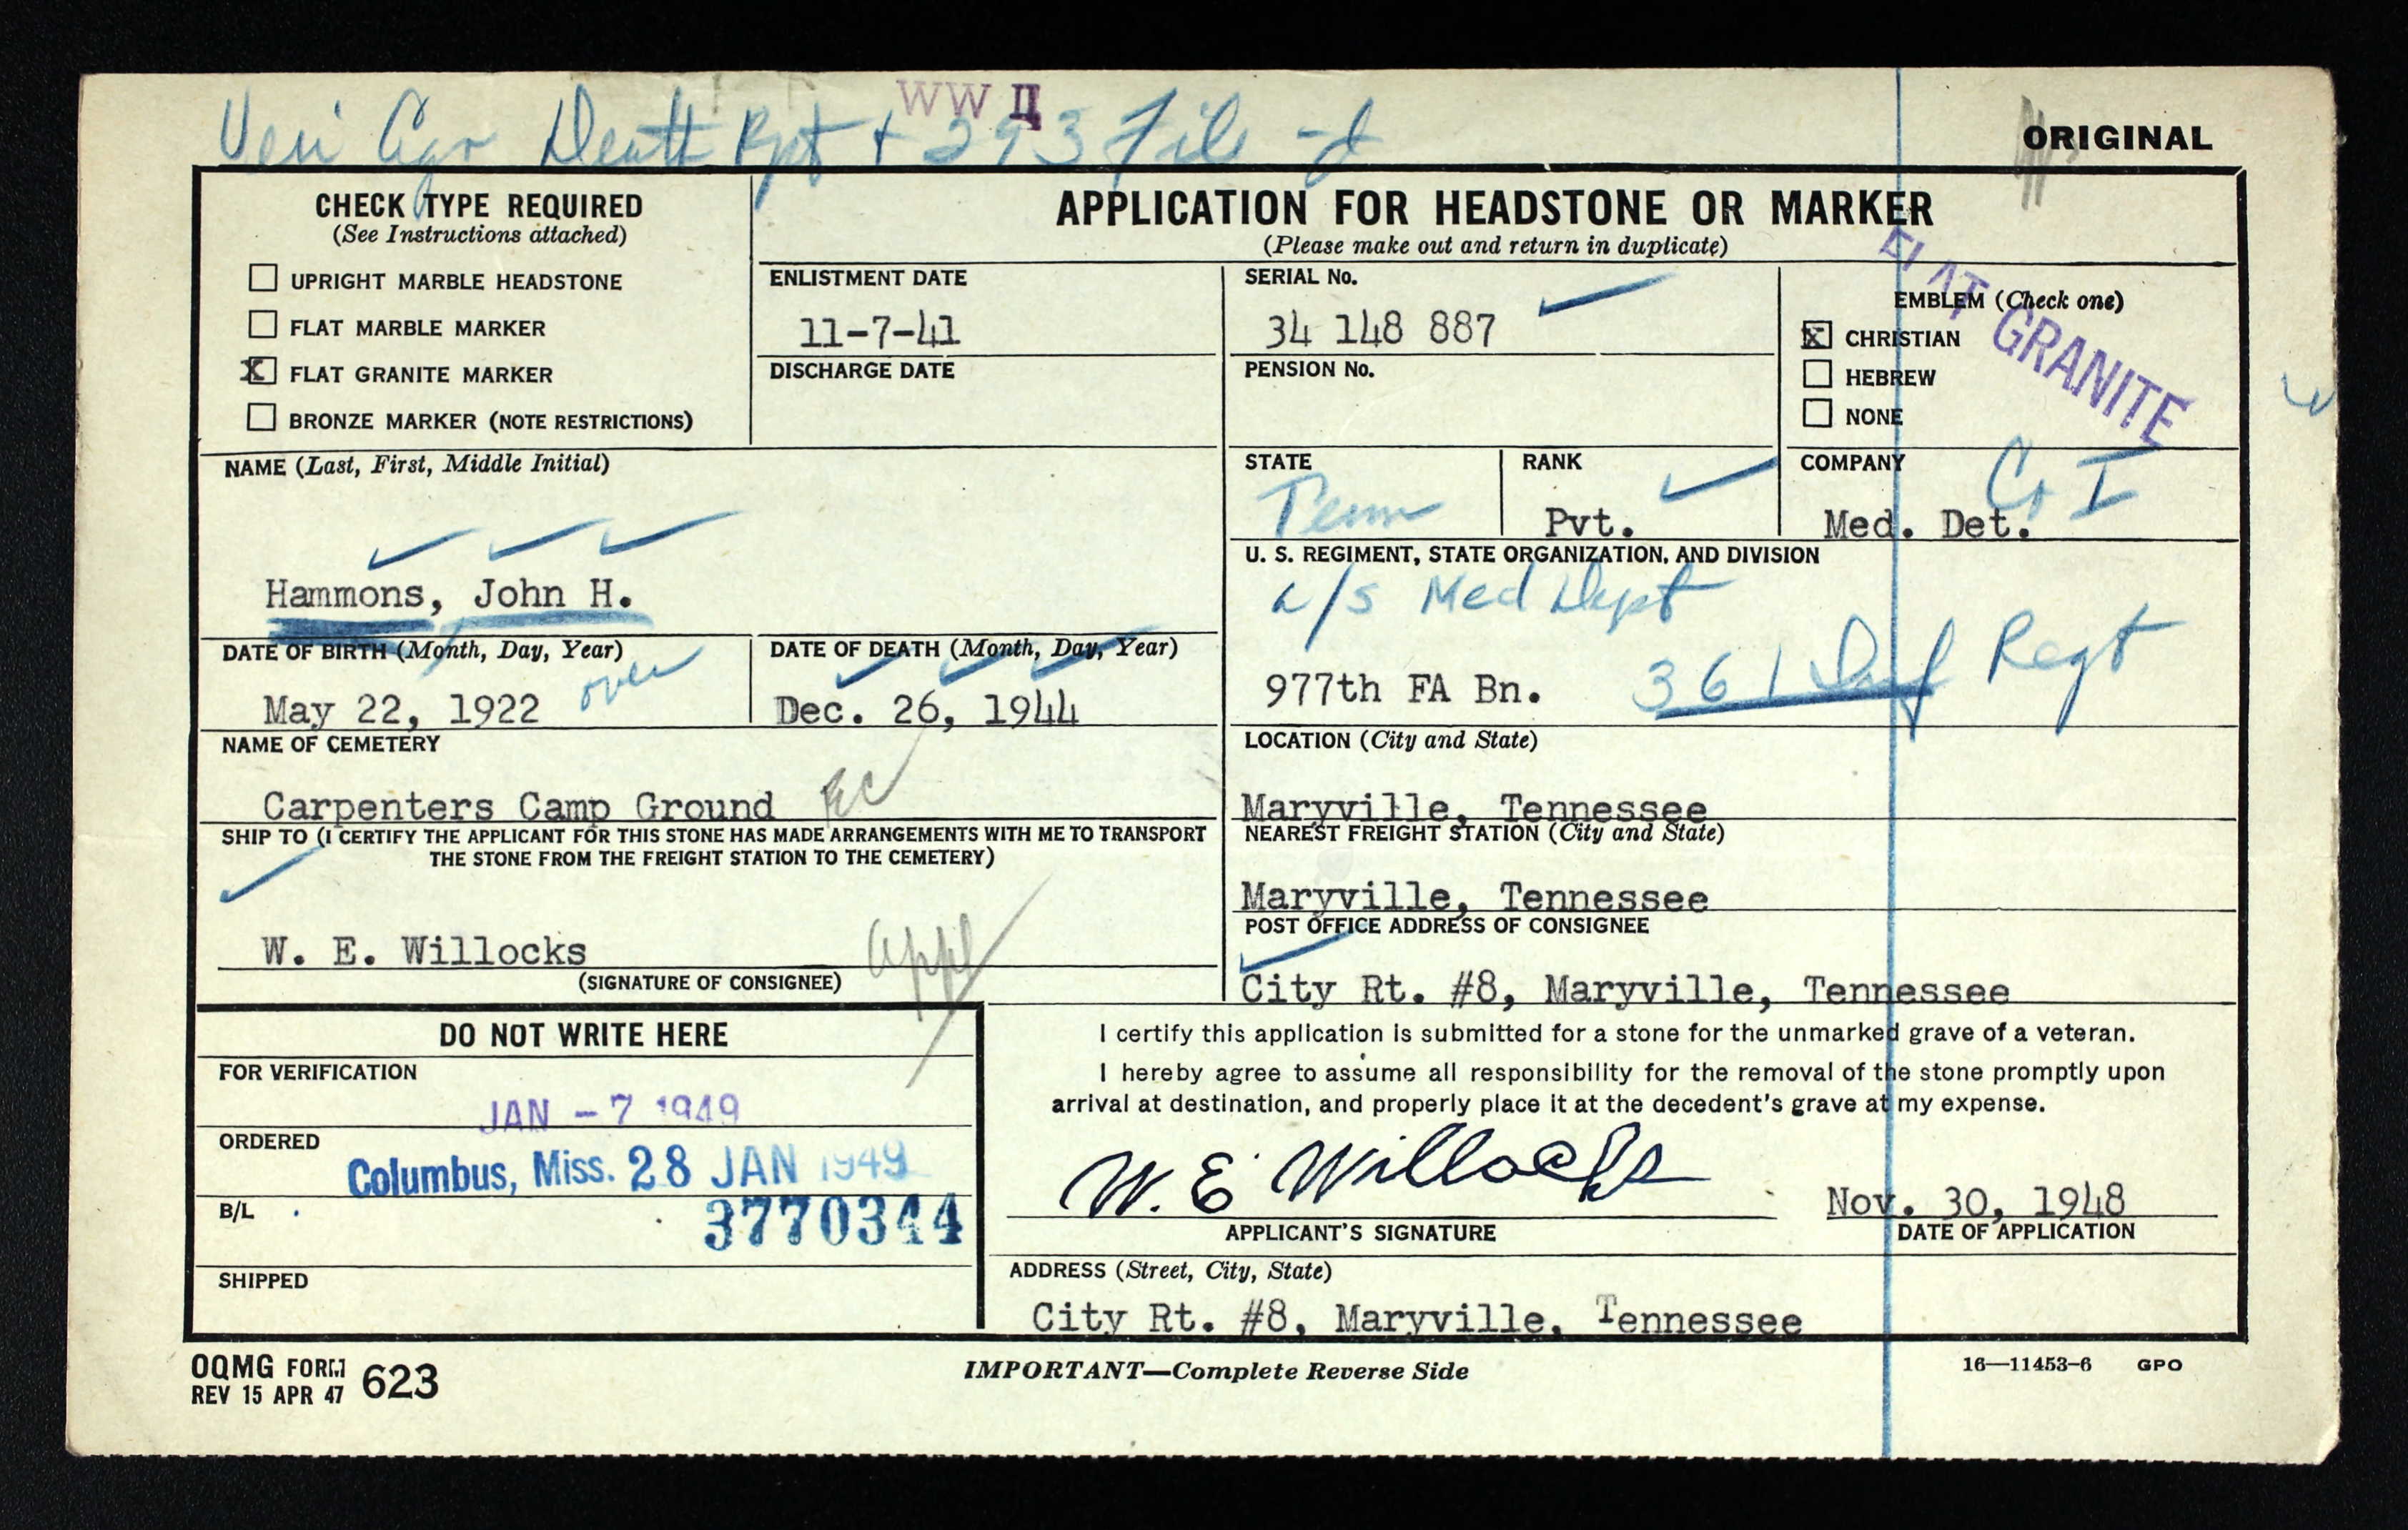 WW II
Veri Death Rpt + 293 File
ORIGINAL
CHECK TYPE REQUIRED
(See Instructions attached)
☐ UPRIGHT MARBLE HEADSTONE
☐ FLAT MARBLE MARKER
☒ FLAT GRANITE MARKER
☐ BRONZE MARKER (NOTE RESTRICTIONS)
APPLICATION FOR HEADSTONE OR MARKER
(Please make out and return in duplicate)
ENLISTMENT DATE
11-7-41
DISCHARGE DATE
SERIAL No.
34 148 887
PENSION No.
FLAT GRANITE
EMBLEM (Check one)
☒ CHRISTIAN
☐ HEBREW
☐ NONE
NAME (Last, First, Middle Initial)
Hammons, John H.
STATE
Tenn
RANK
Pvt.
COMPANY
Co I
Med. Det.
U. S. REGIMENT, STATE ORGANIZATION, AND DIVISION
Med Dept
977th FA Bn. 361 Inf Regt
DATE OF BIRTH (Month, Day, Year)
May 22, 1922 over
DATE OF DEATH (Month, Day, Year)
Dec. 26, 1944
NAME OF CEMETERY
Carpenters Camp Ground
LOCATION (City and State)
Maryville, Tennessee
SHIP TO (I CERTIFY THE APPLICANT FOR THIS STONE HAS MADE ARRANGEMENTS WITH ME TO TRANSPORT
THE STONE FROM THE FREIGHT STATION TO THE CEMETERY)
W. E. Willocks
appl
(SIGNATURE OF CONSIGNEE)
NEAREST FREIGHT STATION (City and State)
Maryville, Tennessee
POST OFFICE ADDRESS OF CONSIGNEE
City Rt. #8, Maryville, Tennessee
DO NOT WRITE HERE
FOR VERIFICATION
JAN -7 1949
ORDERED
Columbus, Miss. 28 JAN 1949
B/L
3770344
SHIPPED
I certify this application is submitted for a stone for the unmarked grave of a veteran.
I hereby agree to assume all responsibility for the removal of the stone promptly upon
arrival at destination, and properly place it at the decedent's grave at my expense.
W. E. Willocks
APPLICANT'S SIGNATURE
Nov. 30, 1948
DATE OF APPLICATION
ADDRESS (Street, City, State)
City Rt. #8, Maryville, Tennessee
OQMG FORM 623
REV 15 APR 47
IMPORTANT—Complete Reverse Side
16—11453-6 GPO